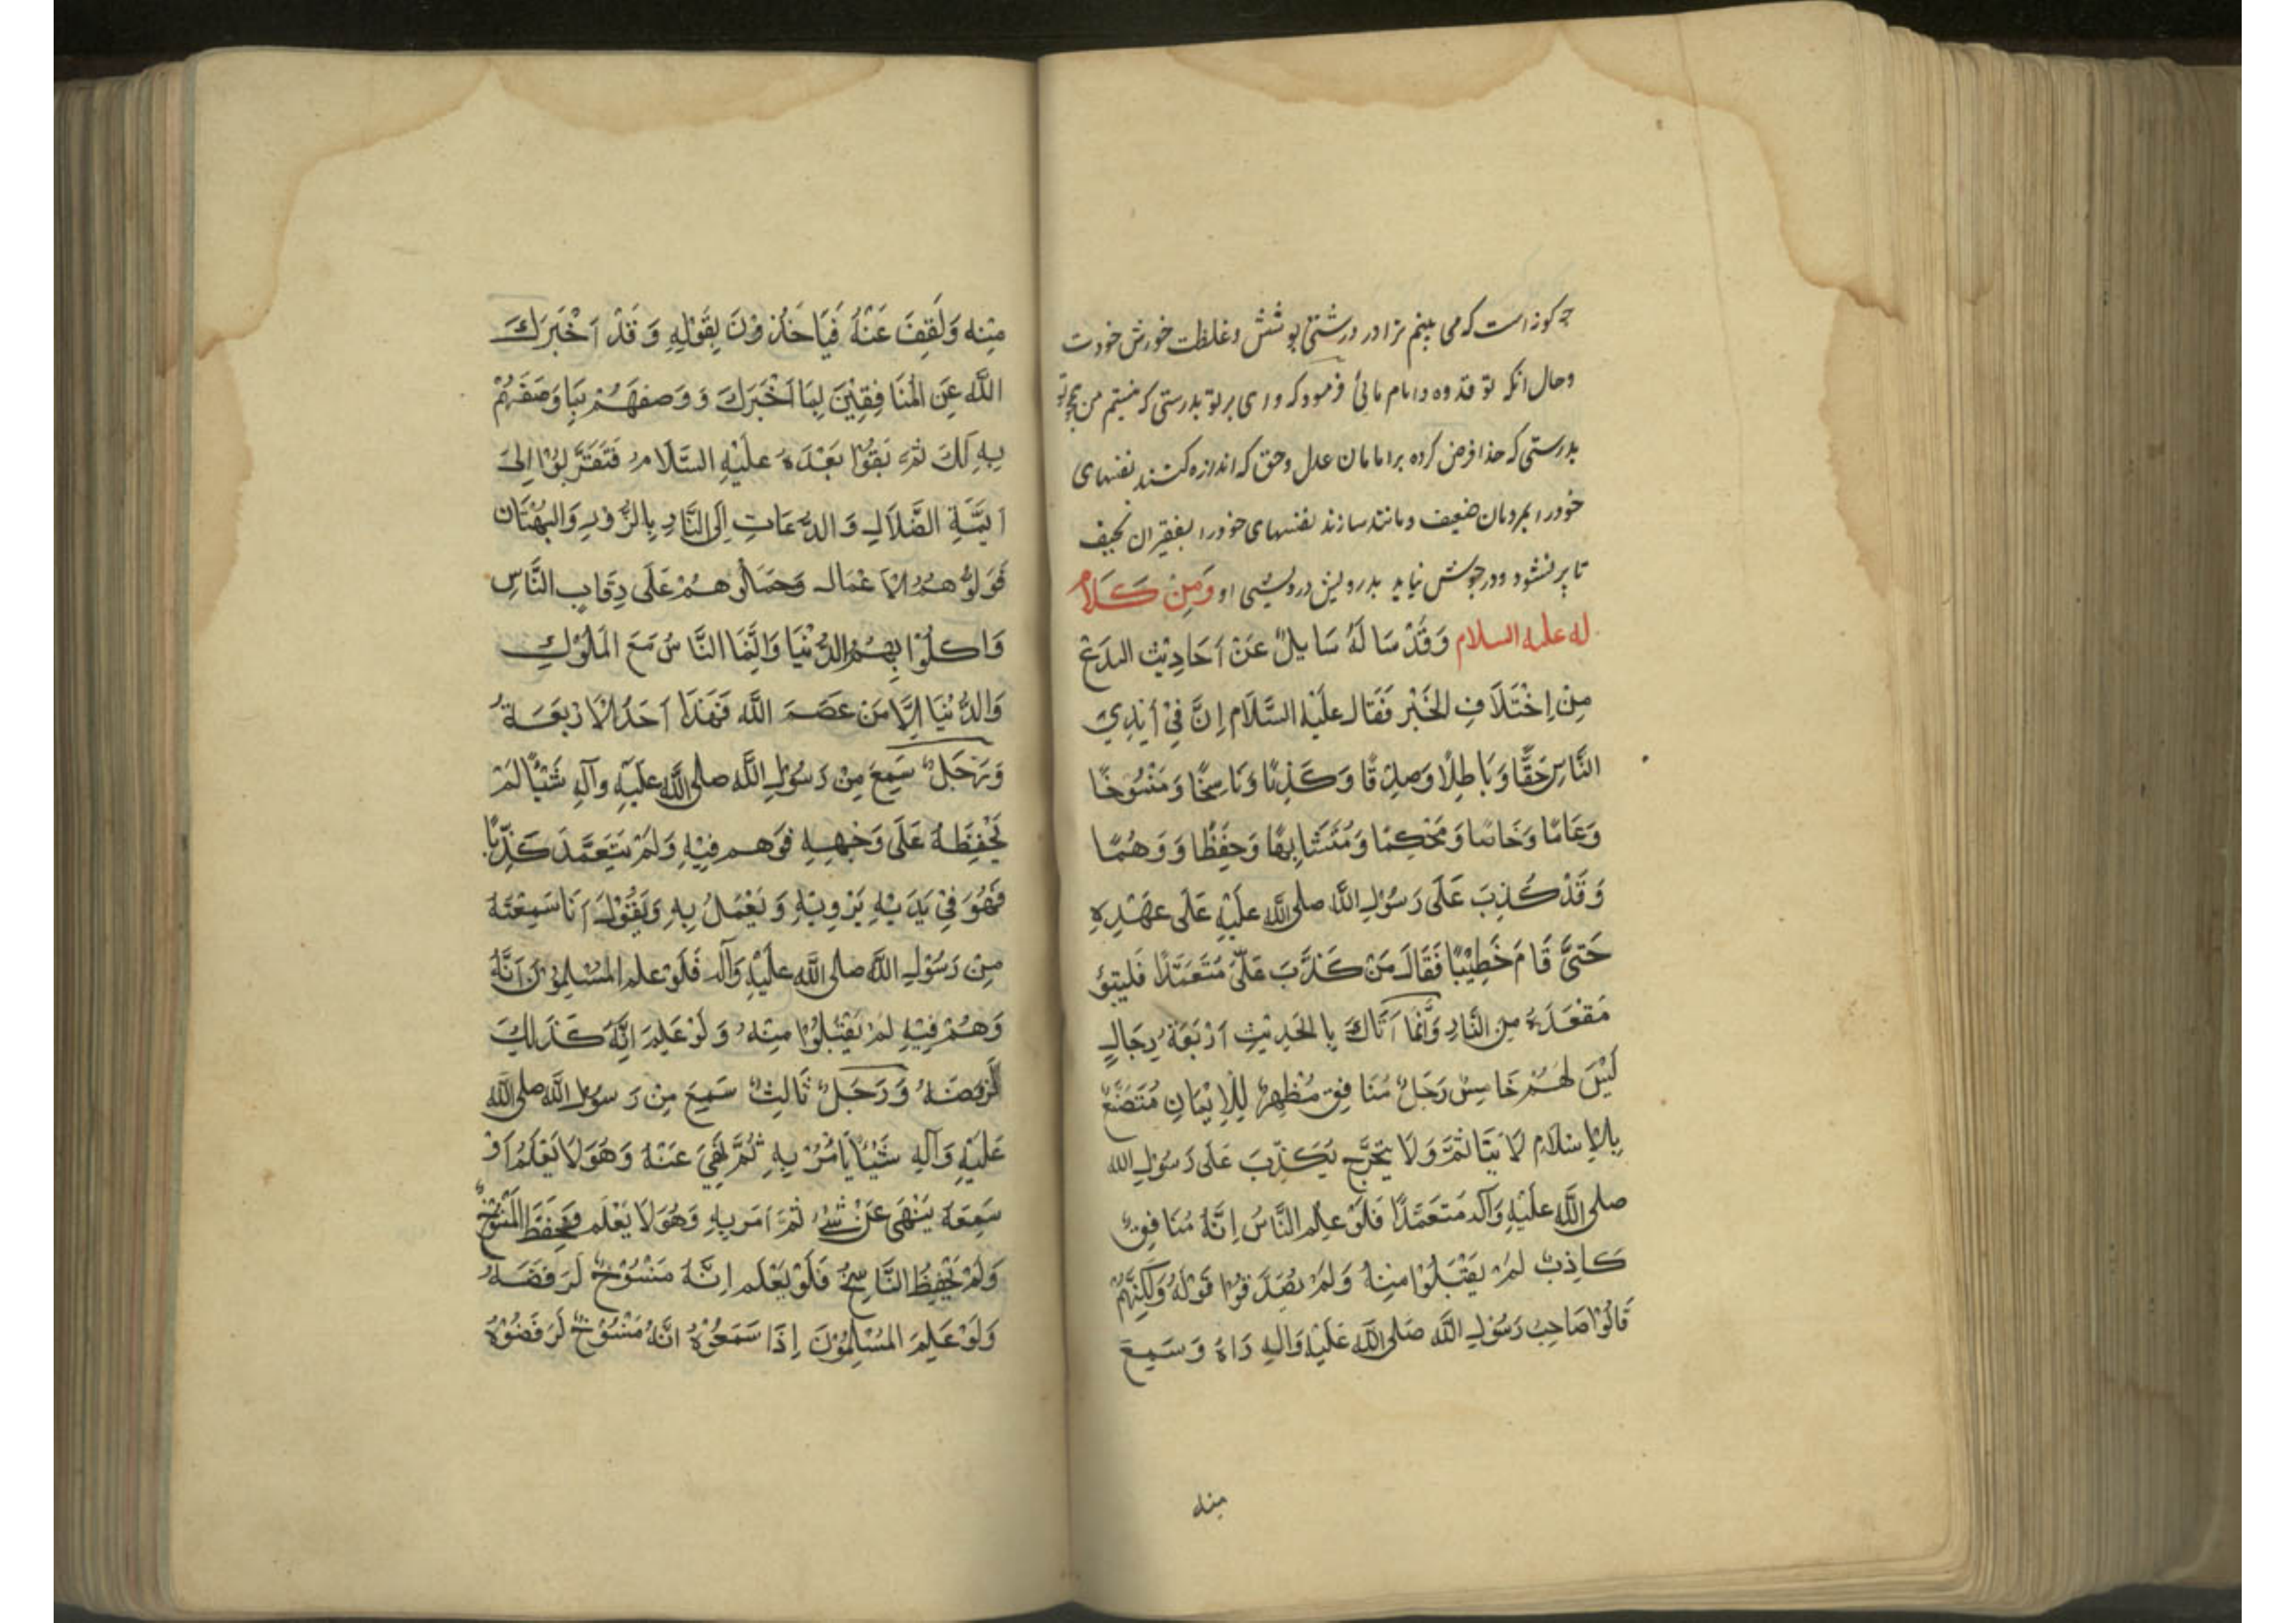 چه کونه است که می بینم ترا در درشتی پوشش و غلظت خورش خودت
و حال انکه تو قدوه و امام مائی فرمود که وای بر تو بدرستی که نیستم من همچو تو
بدرستی که خدا فرض کرده بر امامان عدل و حق که اندازه کنند نفسهای
خود را بمردمان ضعیف و مانند سازند نفسهای خود را بفقیران نحیف
تا پر نشود و در جوش نیاید بدرویش درویشی او وَمِنْ كَلَام
له علیه السلام وَقَدْ سَالَهُ سَايِلٌ عَنْ اَحَادِيْثِ البِدَعِ
مِنْ اِخْتَلَافِ الخَبْرِ فَقَال عَلَيْهِ السَّلَام اِنَّ فِيْ أَيْدِيْ
النَّاسِ حَقًّا وَبَاطِلًا وَصِدْقًا وَكَذِبًا وَنَاسِخًا وَمَنْسُوْخًا
وَعَامًا وَخَاصًا وَمَحْكِمًا وَمُتَشَابِهًا وَحِفَظًا وَوَهْمًا
وَقَدْ كُذِبَ عَلَى رَسُوْلِ اللَّهِ صلى اللَّه عَلَيْهِ عَلَى عَهْدِهِ
حَتَّى قَامَ خَطِيْبًا فَقَالَ مَنْ كَذَّبَ عَلَيَّ مُتَعَمَّدًا فَليتبؤ
مَقْعَدَهُ مِنَ النَّارِ وَاِنَّمَا اَتَاكَ بِالحَدِيْثِ اَرْبَعَةُ رِجَالٍ
لَيْسَ لهُمْ خَامِسٌ رَجَلٌ مُنَافِقٌ مُظهِرٌ لِلْاِيْمَانِ مُتَصَنِّعٌ
بِالاِسْلَامِ لَا يَتَاثمَّ وَلَا يَتحَرَّج يَكَذِّبَ عَلَى رَسُوْلِ الله
صلى اللَّه عَلَيْهِ وَآله مَتَعَمَّدًا فَلَوْ عِلم النَّاسُ اِنَّهُ مُنَافِقٌ
كَاذِبٌ لَمْ يَقْتَبِلُوْا مِنْهُ وَلَمْ يُصَدِّقوْا قَوْلَهُ وَلَكِنَّهُمْ
قَالُوْا صَاحِبُ رَسُوْلِ اللَّه صَلى اللَّه عَلَيْهِ وَالِهِ رَاهُ وَسَمِعَ
منه
مِنْه وَلَقِفَ عَنْهُ فَيَاخَذُوْنَ بِقَوْلِهِ وَقَدْ اَخْبَرَكَ
اللَّه عَنِ المُنَافِقِيْنَ بِمَا اَخْبَرَكَ وَوَصفهَمْ بَمَا وَصَفَهُمْ
بِهِ لَكَ ثمَّ بَقَوْا بَعْدَهُ عَلَيْهِ السَّلَامُ فَتَقَرَّبُوْا اِلَى
اَيِمَّةِ الضَّلَالِ وَالدُّعَاتِ اِلَى النَّارِ بِالزُّوْرِ وَالبُهْتَان
فَوَلَّوْهُمُ الْاَعْمَالَ وَحَمَلُوْهُمْ عَلَى رِقَابِ النَّاسِ
وَاكلُوْا بِهِمُ الدُّنْيَا وَاِنَّمَا النَّاسُ مَعَ المَلُوْكِ
وَالدُّنْيَا اِلَّا مَنْ عَصَمَ اللَّه فَهَذَا اَحَدُ الْاَرْبَعَةُ
وَرَجَلٌ سَمِعَ مِنْ رَسُوْلِ اللَّه صلى اللَّه عَلَيْهِ وآلِهِ شَيْئًا لَمْ
يَحْفِظَهُ عَلَى وَجْهِهِ فوَهم فِيْهِ وَلَمْ يَتَعَمَّدَ كَذِبًا
فَهُوَ فِيْ يَدَيْهِ يَرْوِيْهِ وَيَعْمَلُ بِهِ وَيَقُوْلُ اَنَا سَمِعْتَهُ
مِنْ رَسُوْلِ اللَّه صلى اللَّه عَلَيْهِ وَآله فَلَوْ علم المُسْلِمُوْنَ اَنَّهُ
وَهُمْ فِيْهِ لَمْ يَقْبَلُوْا مِنْهُ وَلَوْ عَلِمَ اِنَّهُ كَذَلِكَ
لَرَفَضَهُ وَرَجَلٌ ثَالِثٌ سَمِعَ مِنْ رَسوْلِ اللَّه صلى اللَّه
عَلَيْهِ وَآلِهِ شَيْئًا يَامُرُ بِهِ ثُمَّ نَهَى عَنْهُ وَهُوَ لَا يَعْلَمُ اَوْ
سَمِعَهُ يَنْهَى عَنْ شَيْءٍ ثمَّ اَمَر بِهِ وَهُوَ لَا يَعْلَم فَحفِظَ المَنْسُوْخَ
وَلَمْ يَحْفِظُ النَّاسِخَ فَلَوْ يَعْلَم اِنَّهُ مَنْسُوْخٌ لَرَفَضَهُ
وَلَوْ عَلِمَ المُسْلِمُوْنَ اِذَا سَمَعُوْهُ انَّهُ مَنْسُوْخٌ لَرَفَضُوْهُ